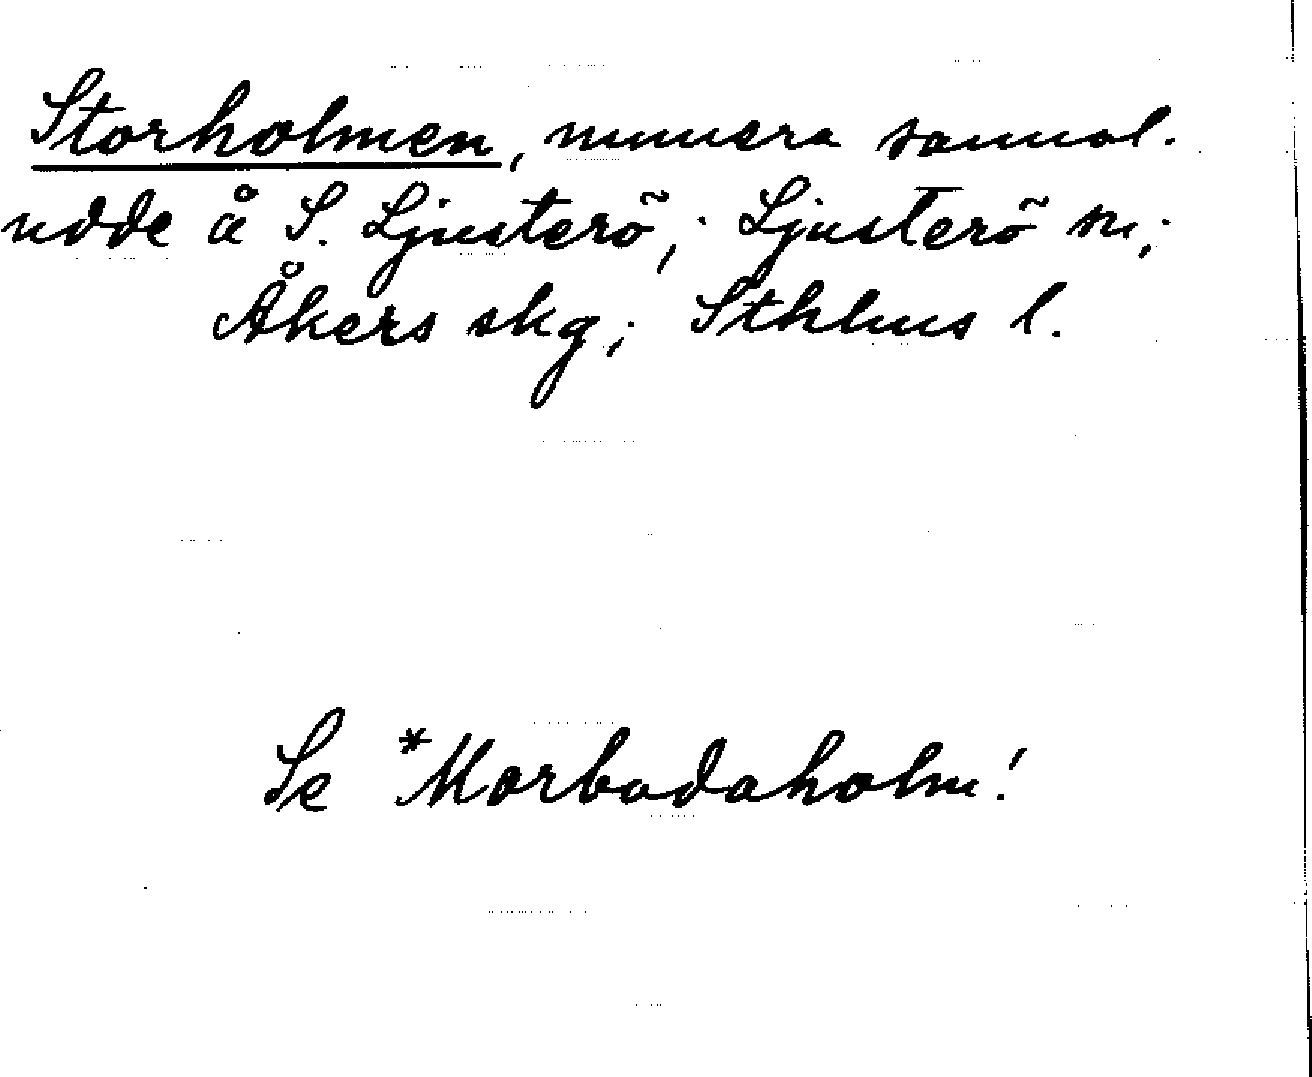 Storholmen, numera sannol.
udde å S. Ljusterö; Ljusterö sn;
Åkers skg; Sthlms l.
Se *Morbadaholm!